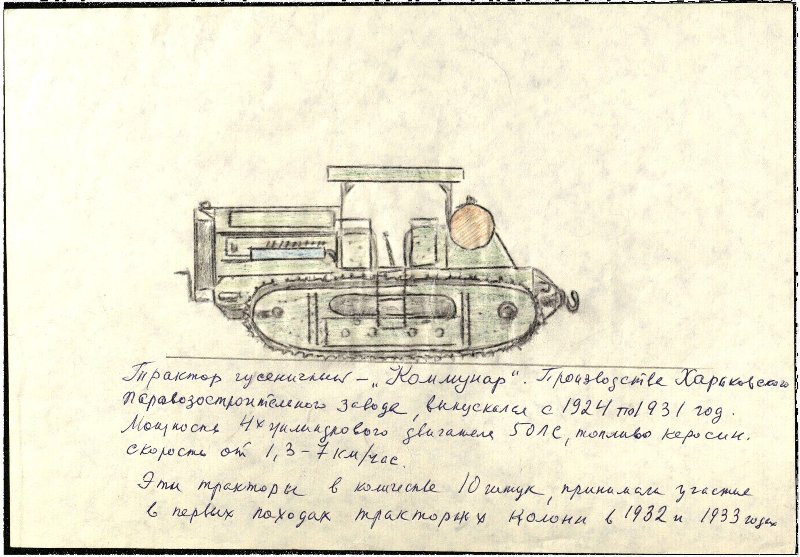 Трактор гусеничный – „Коммунар". Производства Харьковского
паравозостроительного завода, выпускался с 1924 по 1931 год.
Мощность 4х цилиндрового двигателя 50ЛС, топливо керосин.
скорость от 1,3 – 7 км/час.
Эти тракторы в количестве 10 штук, принимали участие
в первых походах тракторных колонн в 1932 и 1933 годах